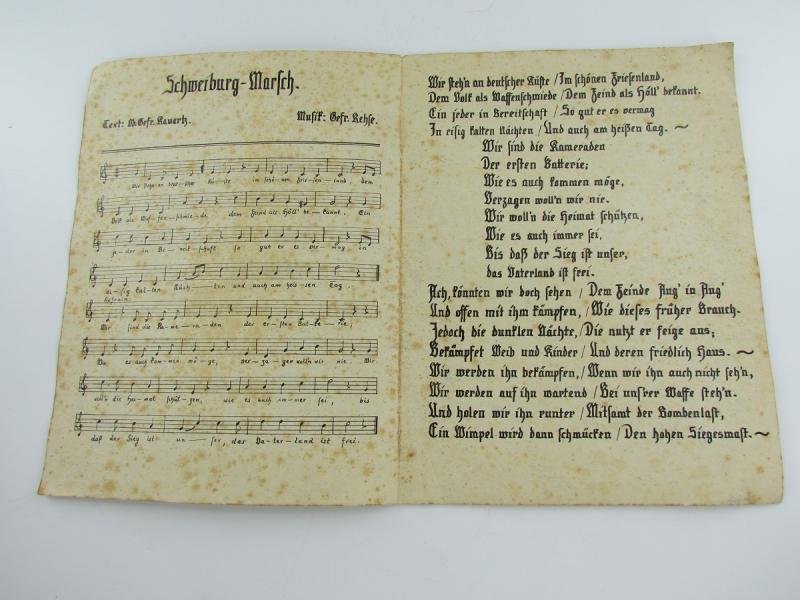 Schweiburg-Marsch.
Text: Ob.Gefr. Kauertz. Musik: Gefr. Rehse.
Wir steh'n an deutscher Kü-ste im schö-nen Frie-sen-land, dem
Volk als Waf-fen-schmie-de, dem Feind als Höll' be-kannt. Ein
je-der in Be-reit-schaft so gut er es ver-mag in
ei-sig kal-ten Näch-ten und auch am hei-ssen Tag.
Refrain
Wir sind die Ka-me-ra-den der er-sten Bat-te-rie;
Wie es auch kom-men mö-ge, ver-za-gen woll'n wir nie. Wir
woll'n die Hei-mat schüt-zen, wie es auch im-mer sei, bis
daß der Sieg ist un-ser, das Va-ter-land ist frei.
Wir steh'n an deutscher Küste / Im schönen Friesenland,
Dem Volk als Waffenschmiede / Dem Feind als Höll' bekannt.
Ein jeder in Bereitschaft / So gut er es vermag
In eisig kalten Nächten / Und auch am heißen Tag. ~
Wir sind die Kameraden
Der ersten Batterie;
Wie es auch kommen möge,
Verzagen woll'n wir nie.
Wir woll'n die Heimat schützen,
Wie es auch immer sei,
Bis daß der Sieg ist unser,
das Vaterland ist frei.
Ach, könnten wir doch sehen / Dem Feinde Aug' in Aug'
Und offen mit ihm kämpfen, / Wie dieses früher Brauch.
Jedoch die dunklen Nächte, / Die nutzt er feige aus;
Bekämpfet Weib und Kinder / Und deren friedlich Haus. ~
Wir werden ihn bekämpfen, / Wenn wir ihn auch nicht seh'n,
Wir werden auf ihn wartend / Bei uns'rer Waffe steh'n.
Und holen wir ihn runter / Mitsamt der Bombenlast,
Ein Wimpel wird dann schmücken / Den hohen Siegesmast. ~